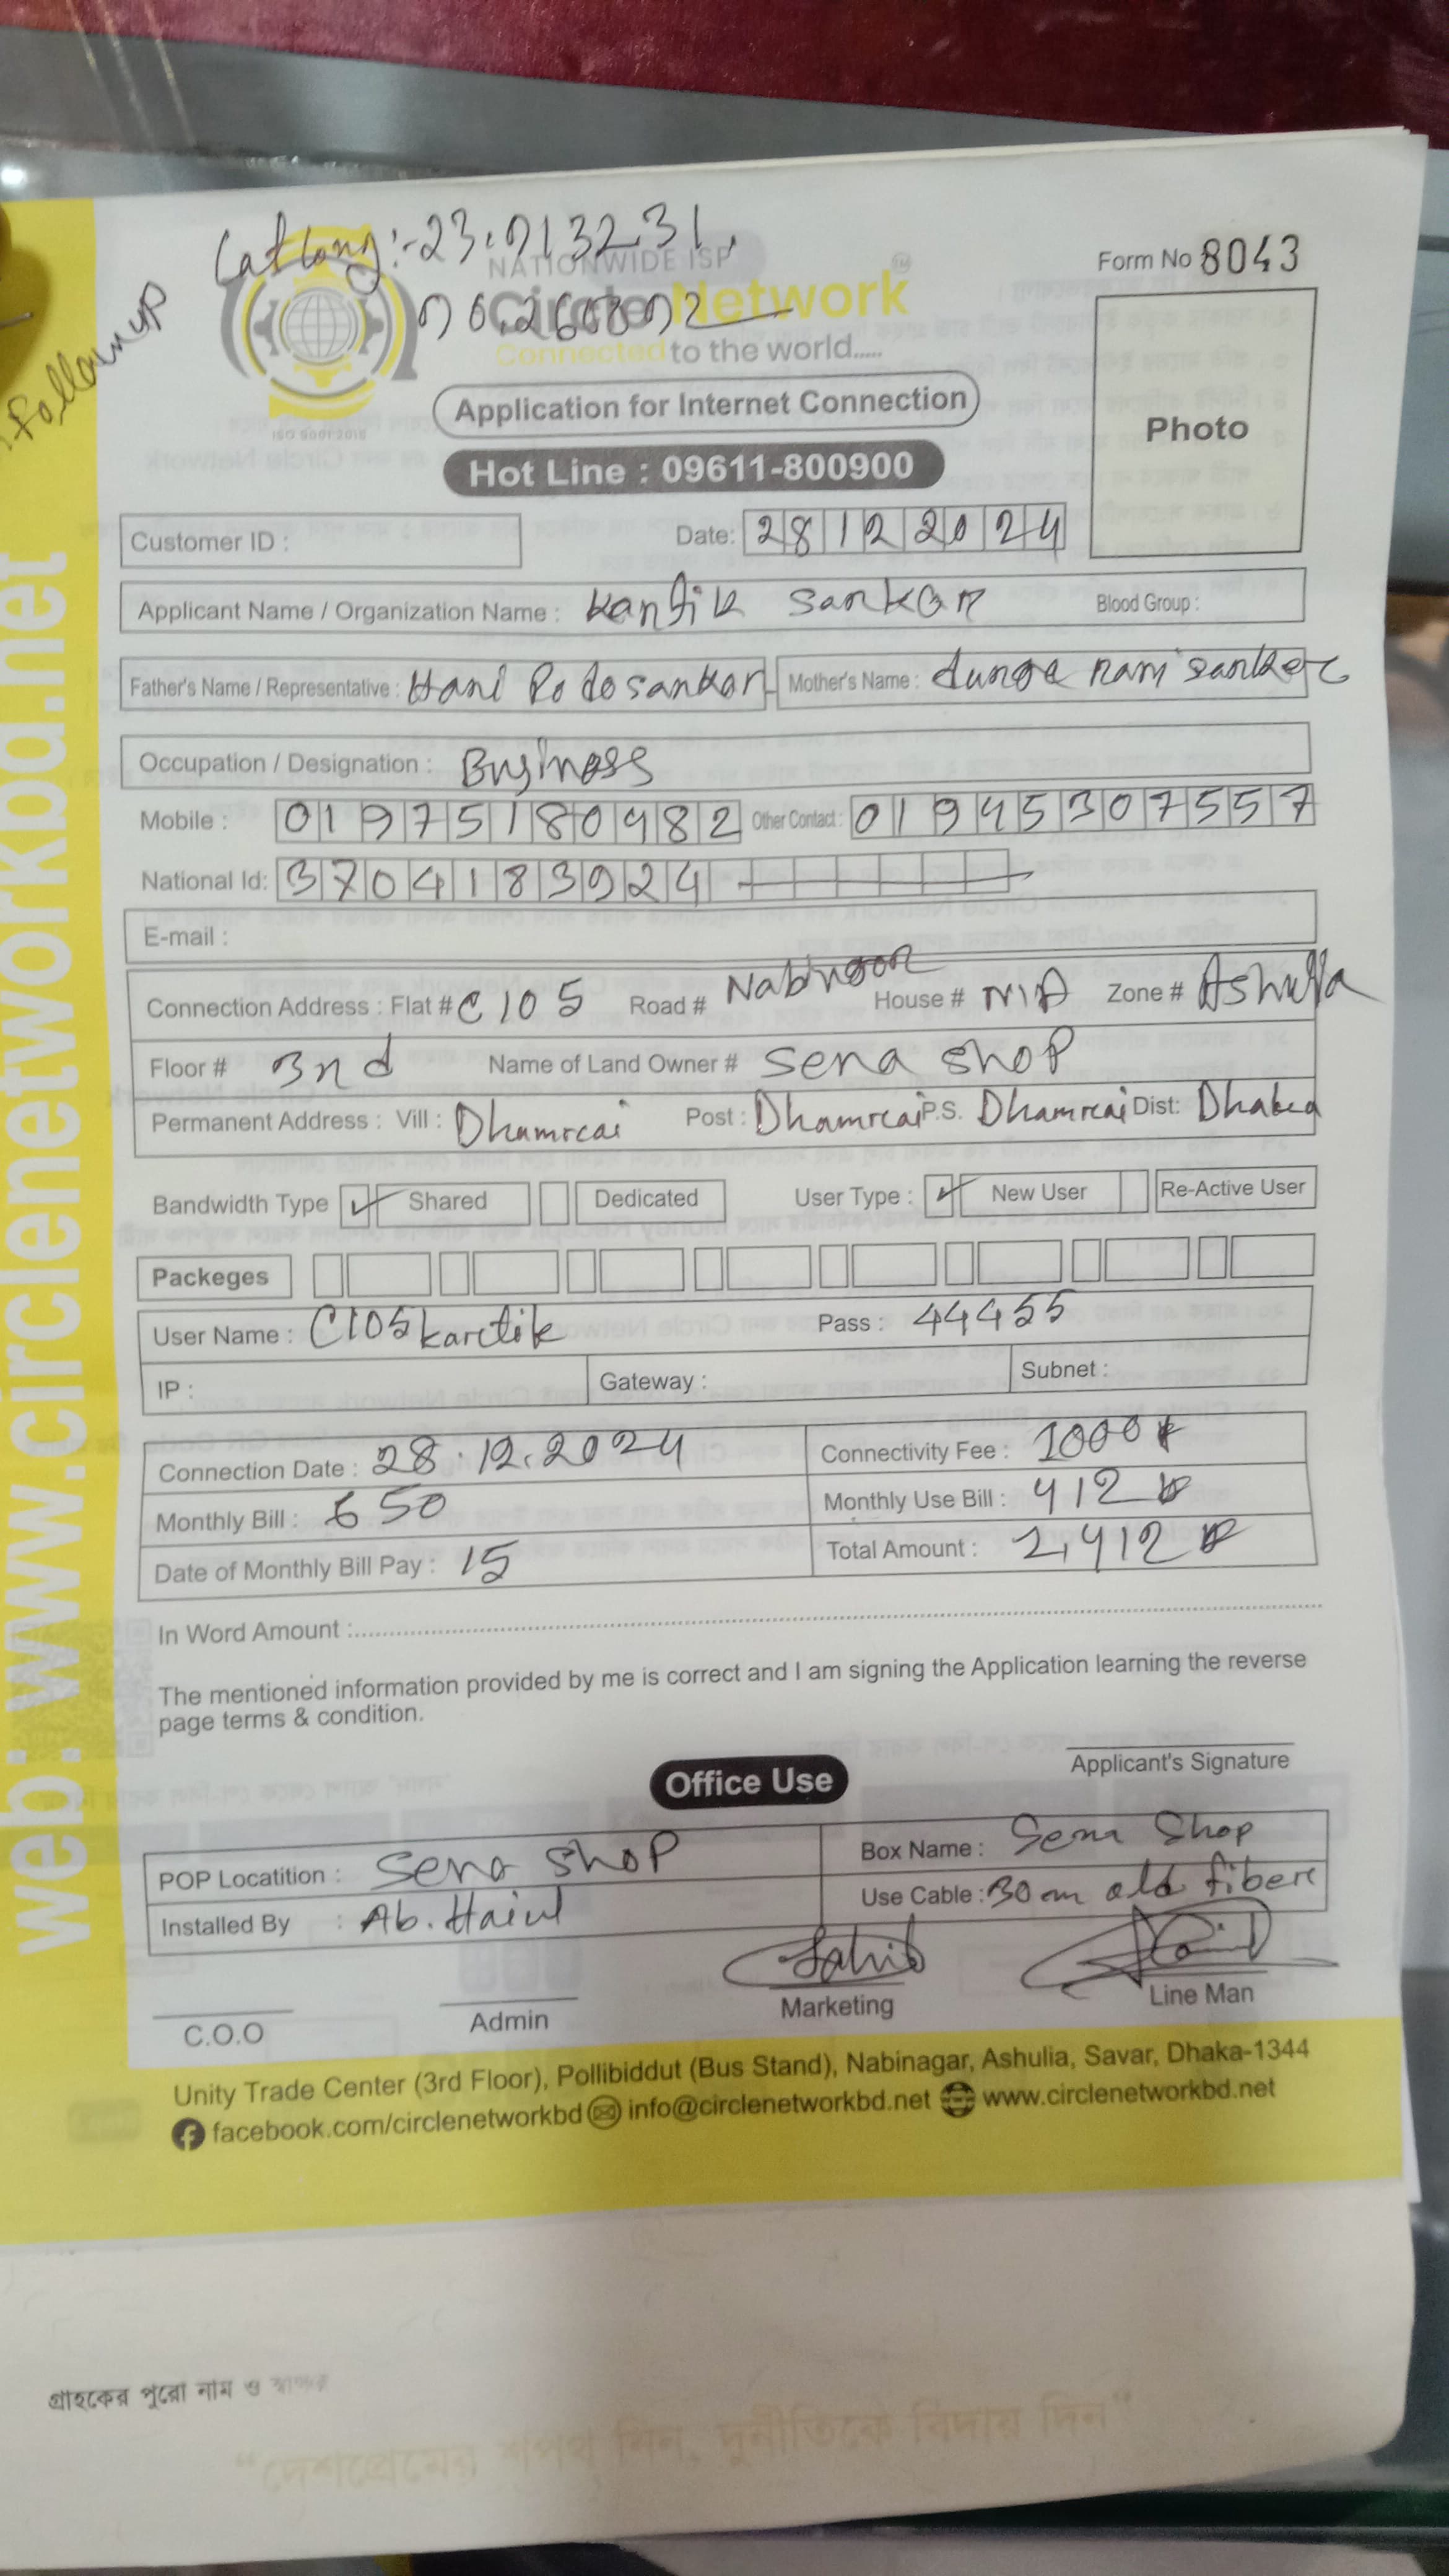 Lat Long:- 23.913231,
90.260892
Follow up
NATIONWIDE ISP
Circle Network
Connected to the world.....
ISO 9001:2015
Form No 8043
Photo
Application for Internet Connection
Hot Line : 09611-800900
Customer ID :
Date: 28122024
Applicant Name / Organization Name : Kantik Sankar Blood Group :
Father's Name / Representative : Hani Podo sankar Mother's Name : dunga rani sanker
Occupation / Designation : Business
Mobile : 01975180982 Other Contact : 01945307557
National Id: 3704183924
E-mail :
Connection Address : Flat # C105 Road # Nabinoor House # N/A Zone # Ashulia
Floor # 3nd Name of Land Owner # Sena Shop
Permanent Address : Vill : Dhamrcai Post : Dhamrcai P.S. Dhamrcai Dist: Dhaka
Bandwidth Type Shared Dedicated User Type : New User Re-Active User
Packeges
User Name : C105karctik Pass : 44455
IP : Gateway : Subnet :
Connection Date : 28.12.2024 Connectivity Fee : 1000৳
Monthly Bill : 650 Monthly Use Bill : 412৳
Date of Monthly Bill Pay : 15 Total Amount : 1,412৳
In Word Amount :
The mentioned information provided by me is correct and I am signing the Application learning the reverse
page terms & condition.
Applicant's Signature
Office Use
POP Locatition : Sena Shop Box Name : Sena Shop
Installed By : Ab. Haiul Use Cable : 30 m old fiberc
C.O.O Admin Marketing Line Man
Unity Trade Center (3rd Floor), Pollibiddut (Bus Stand), Nabinagar, Ashulia, Savar, Dhaka-1344
facebook.com/circlenetworkbd info@circlenetworkbd.net www.circlenetworkbd.net
web: www.circlenetworkbd.net
গ্রাহকের পুরো নাম ও
“দেশপ্রেমের শপথ নিন, দুর্নীতিকে বিদায় দিন”